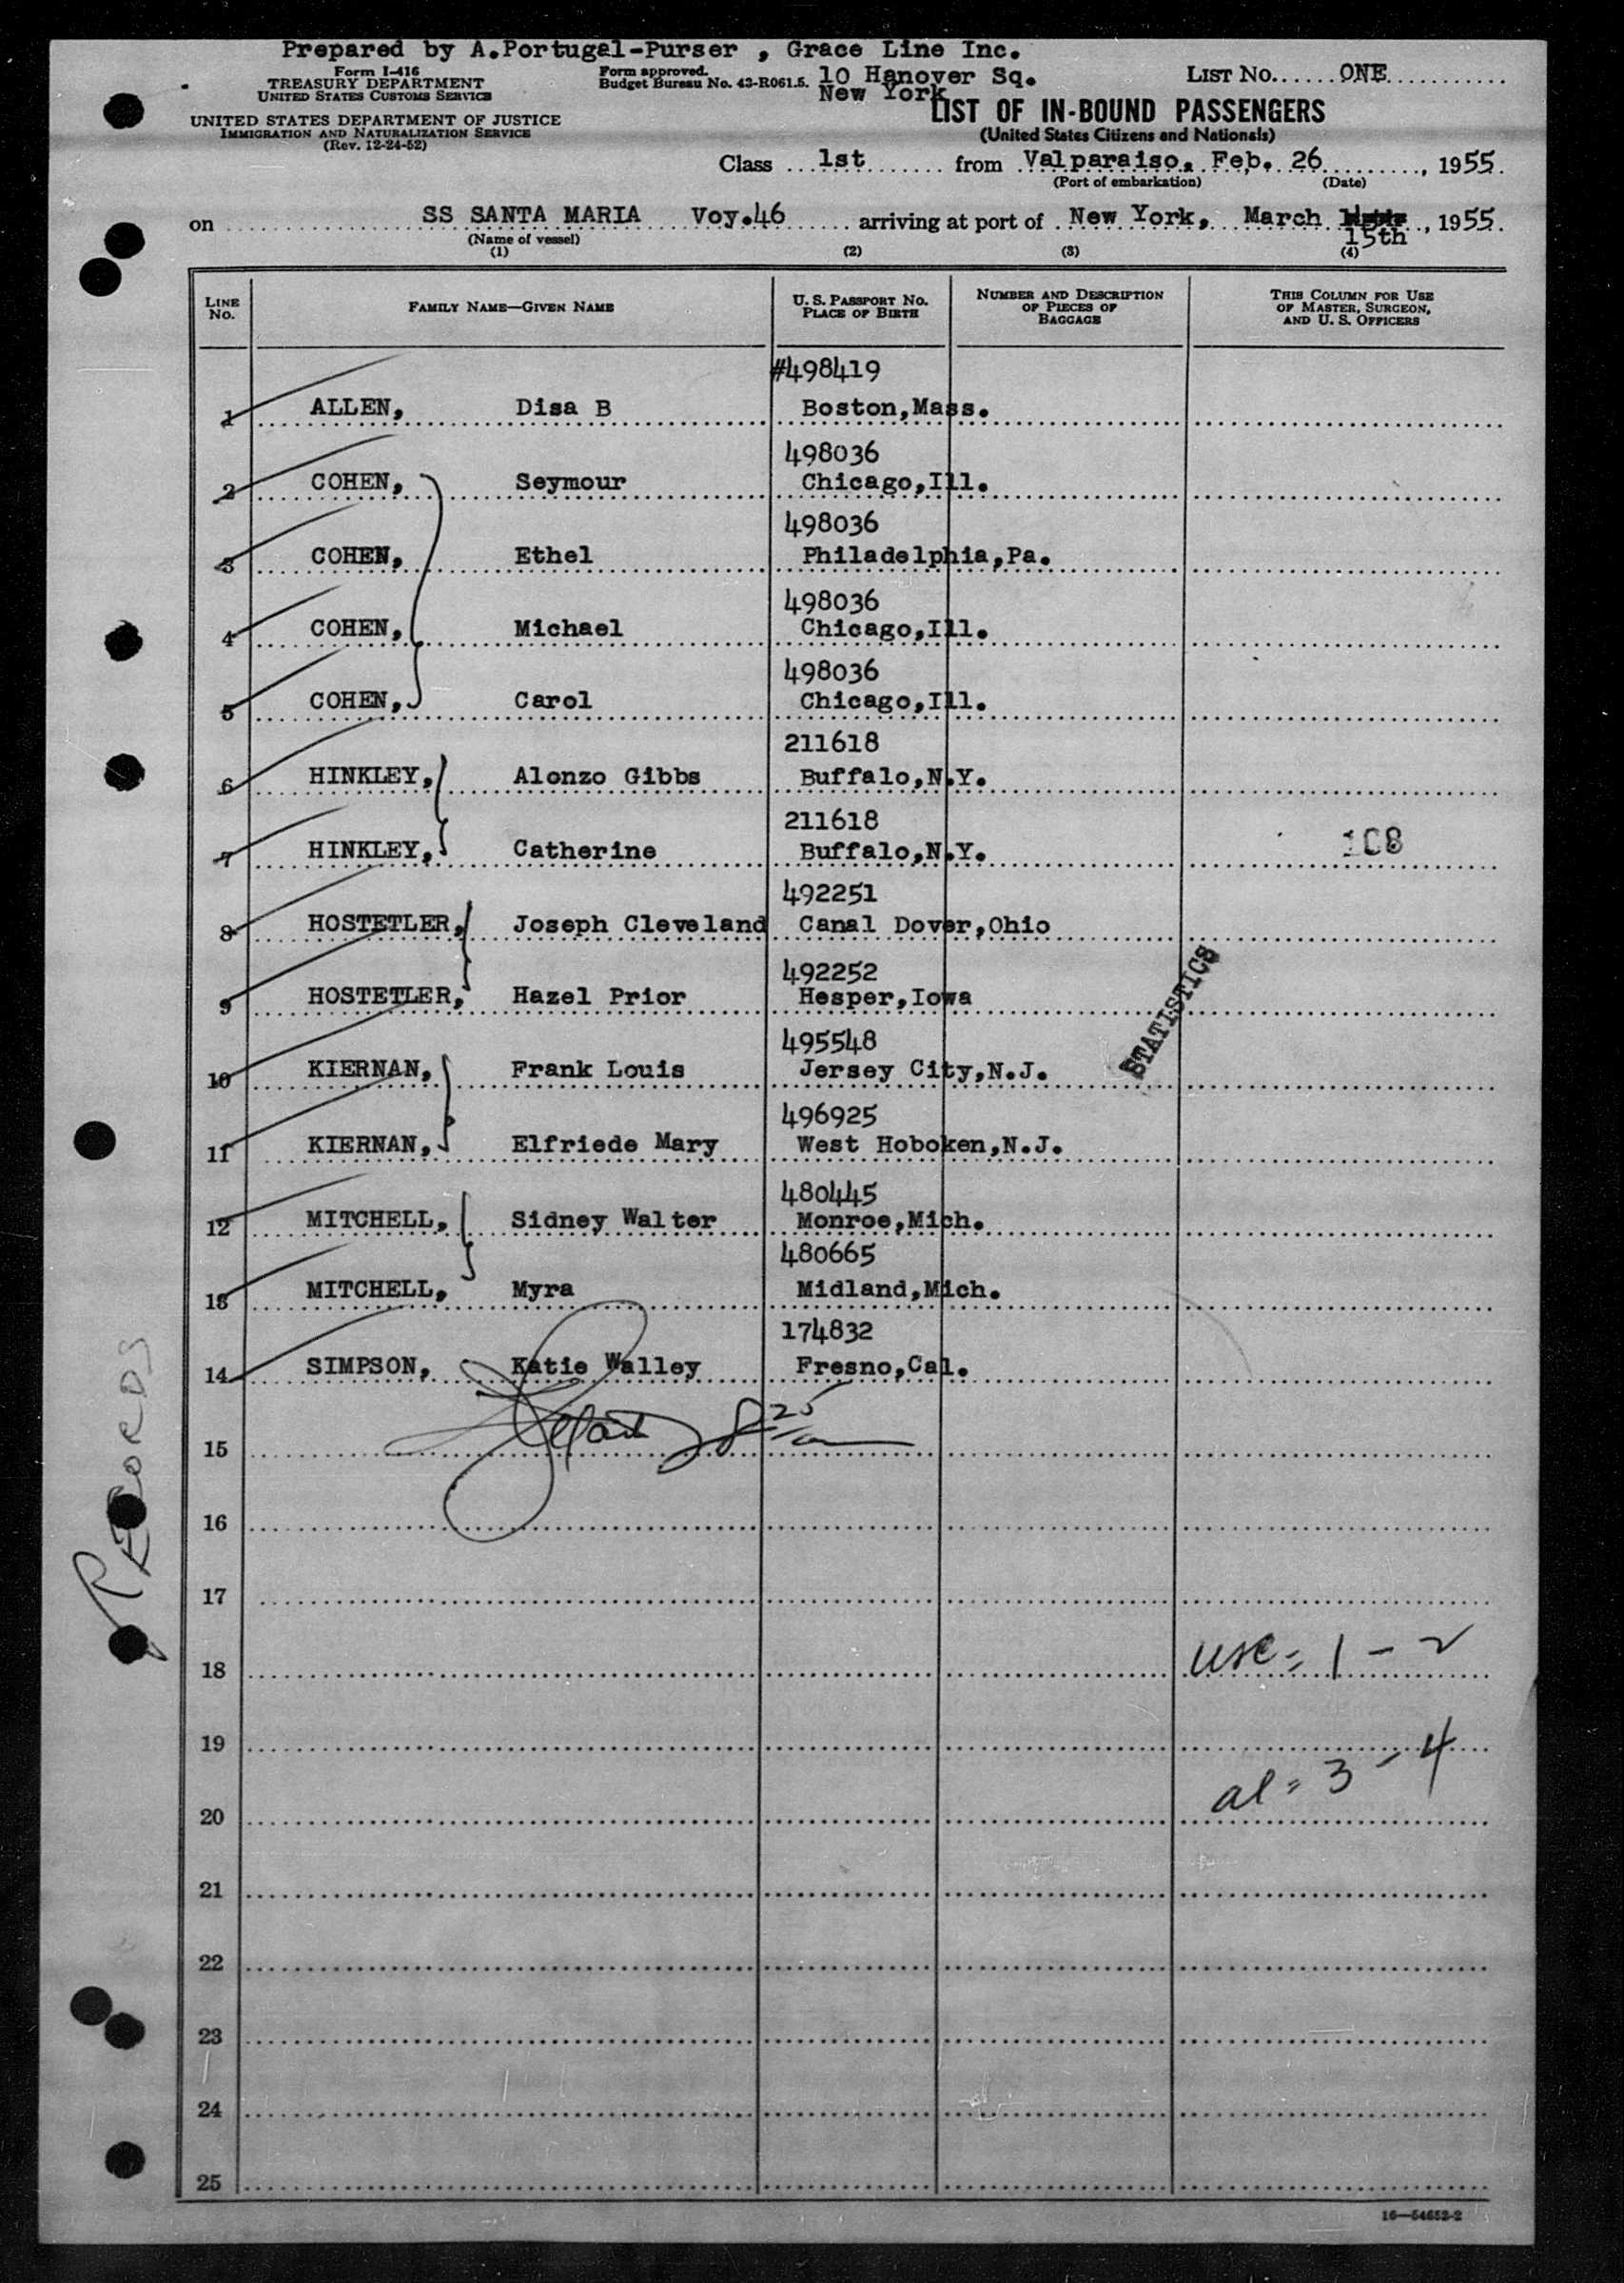 Prepared by A.Portugal-Purser , Grace Line Inc.
Form I-416
TREASURY DEPARTMENT
UNITED STATES CUSTOMS SERVICE
UNITED STATES DEPARTMENT OF JUSTICE
IMMIGRATION AND NATURALIZATION SERVICE
(Rev. 12-24-52)
Form approved.
Budget Bureau No. 43-R061.5.
10 Hanover Sq.
New York
LIST No. ONE
LIST OF IN-BOUND PASSENGERS
(United States Citizens and Nationals)
Class 1st from Valparaiso, Feb. 26, 1955.
(Port of embarkation) (Date)
on SS SANTA MARIA Voy.46 arriving at port of New York, March 15th, 1955.
(Name of vessel)
(1) (2) (3) (4)
LINE No. FAMILY NAME—GIVEN NAME U. S. PASSPORT No. PLACE OF BIRTH NUMBER AND DESCRIPTION OF PIECES OF BAGGAGE THIS COLUMN FOR USE OF MASTER, SURGEON, AND U. S. OFFICERS
#498419
1 ALLEN, Disa B Boston,Mass.
498036
2 COHEN, Seymour Chicago,Ill.
498036
3 COHEN, Ethel Philadelphia,Pa.
498036
4 COHEN, Michael Chicago,Ill.
498036
5 COHEN, Carol Chicago,Ill.
211618
6 HINKLEY, Alonzo Gibbs Buffalo,N.Y.
211618
7 HINKLEY, Catherine Buffalo,N.Y. 108
492251
8 HOSTETLER, Joseph Cleveland Canal Dover,Ohio
492252
9 HOSTETLER, Hazel Prior Hesper,Iowa
STATISTICS
495548
10 KIERNAN, Frank Louis Jersey City,N.J.
496925
11 KIERNAN, Elfriede Mary West Hoboken,N.J.
480445
12 MITCHELL, Sidney Walter Monroe,Mich.
480665
13 MITCHELL, Myra Midland,Mich.
174832
14 SIMPSON, Katie Walley Fresno,Cal.
15
16
17
18 usc = 1 - 2
19
al = 3 - 4
20
21
22
23
24
25
RECORDS
16—54652-2